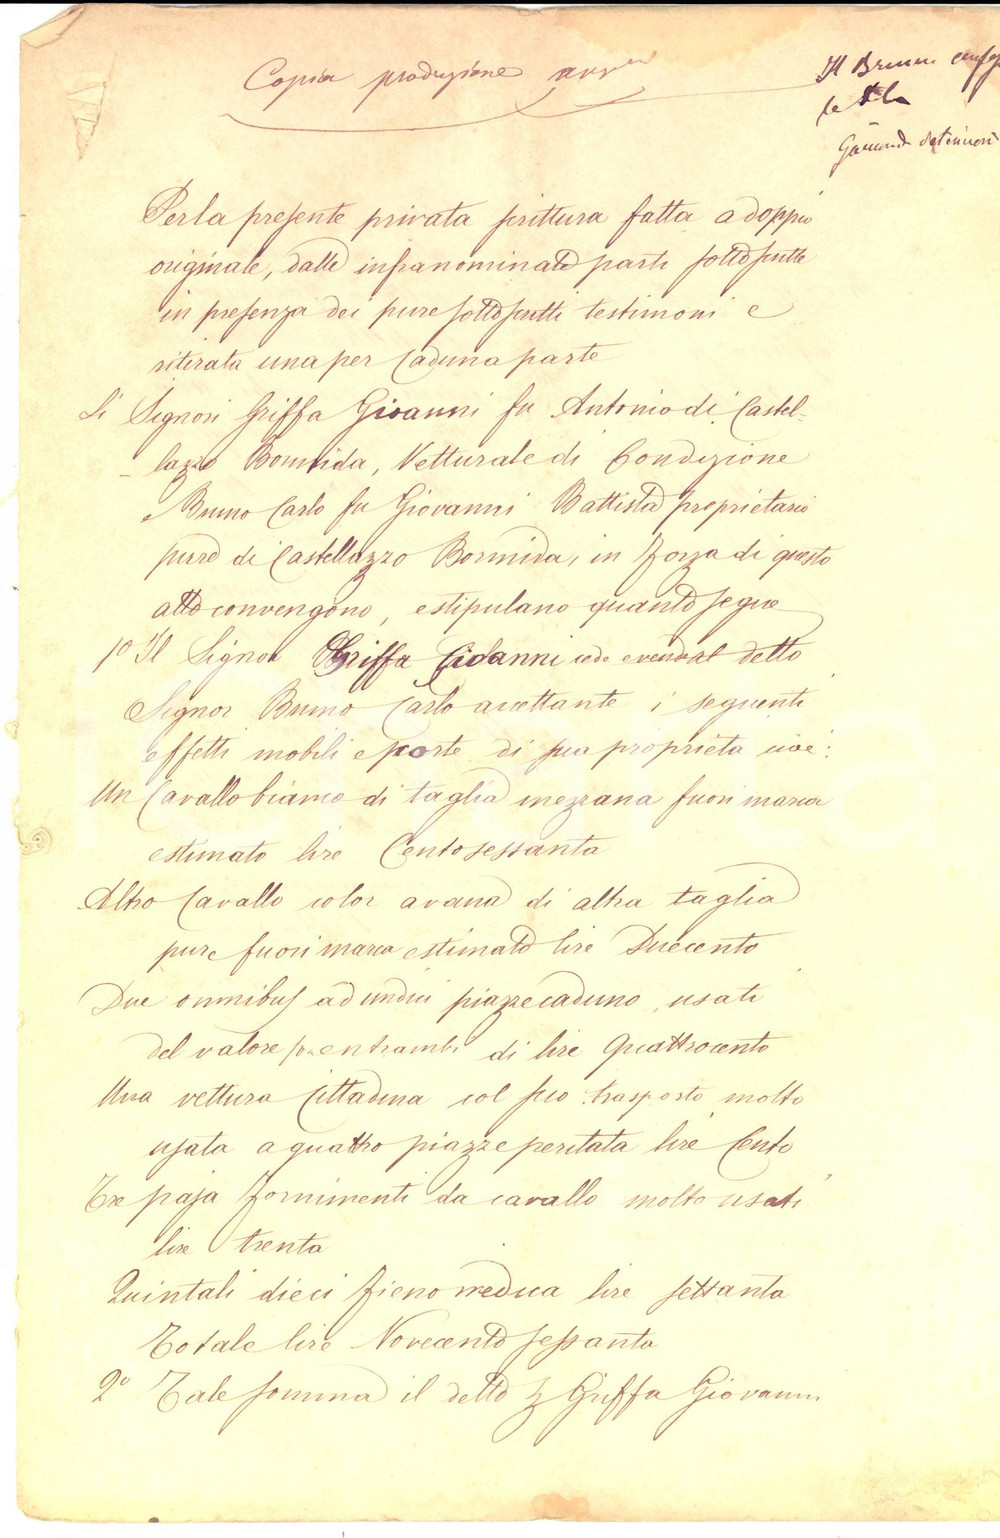 Copia produzione
Il Bruno
Per la presente privata scrittura fatta a doppio
originale, dalle infranominate parti sottoscritte
in presenza dei pure sottoscritti testimoni e
ritirata una per caduna parte
Li Signori Griffa Giovanni fu Antonio di Castel-
-lazzo Bormida, Vetturale di Condizione
e Bruno Carlo fu Giovanni Battista proprietario
pure di Castellazzo Bormida, in forza di questo
atto convengono, e stipulano quanto segue
1o Il Signor Griffa Giovanni cede e vende al detto
Signor Bruno Carlo accettante i seguenti
effetti mobili e scorte di sua proprietà cioè:
Un Cavallo bianco di taglia mezzana fuori marca
estimato lire Centosessanta
Altro Cavallo color avana di alta taglia
pure fuori marca estimato lire Duecento
Due omnibus ad undici piazze caduno, usati
del valore fra entrambi di lire Quattrocento
Una vettura Cittadina col suo trasporto molto
usata a quattro piazze peritata lire Cento
Tre paja fornimenti da cavallo molto usati
lire trenta
Quintali dieci fieno medica lire settanta
Totale lire Novecento sessanta
2o Tale somma il detto Sr Griffa Giovanni